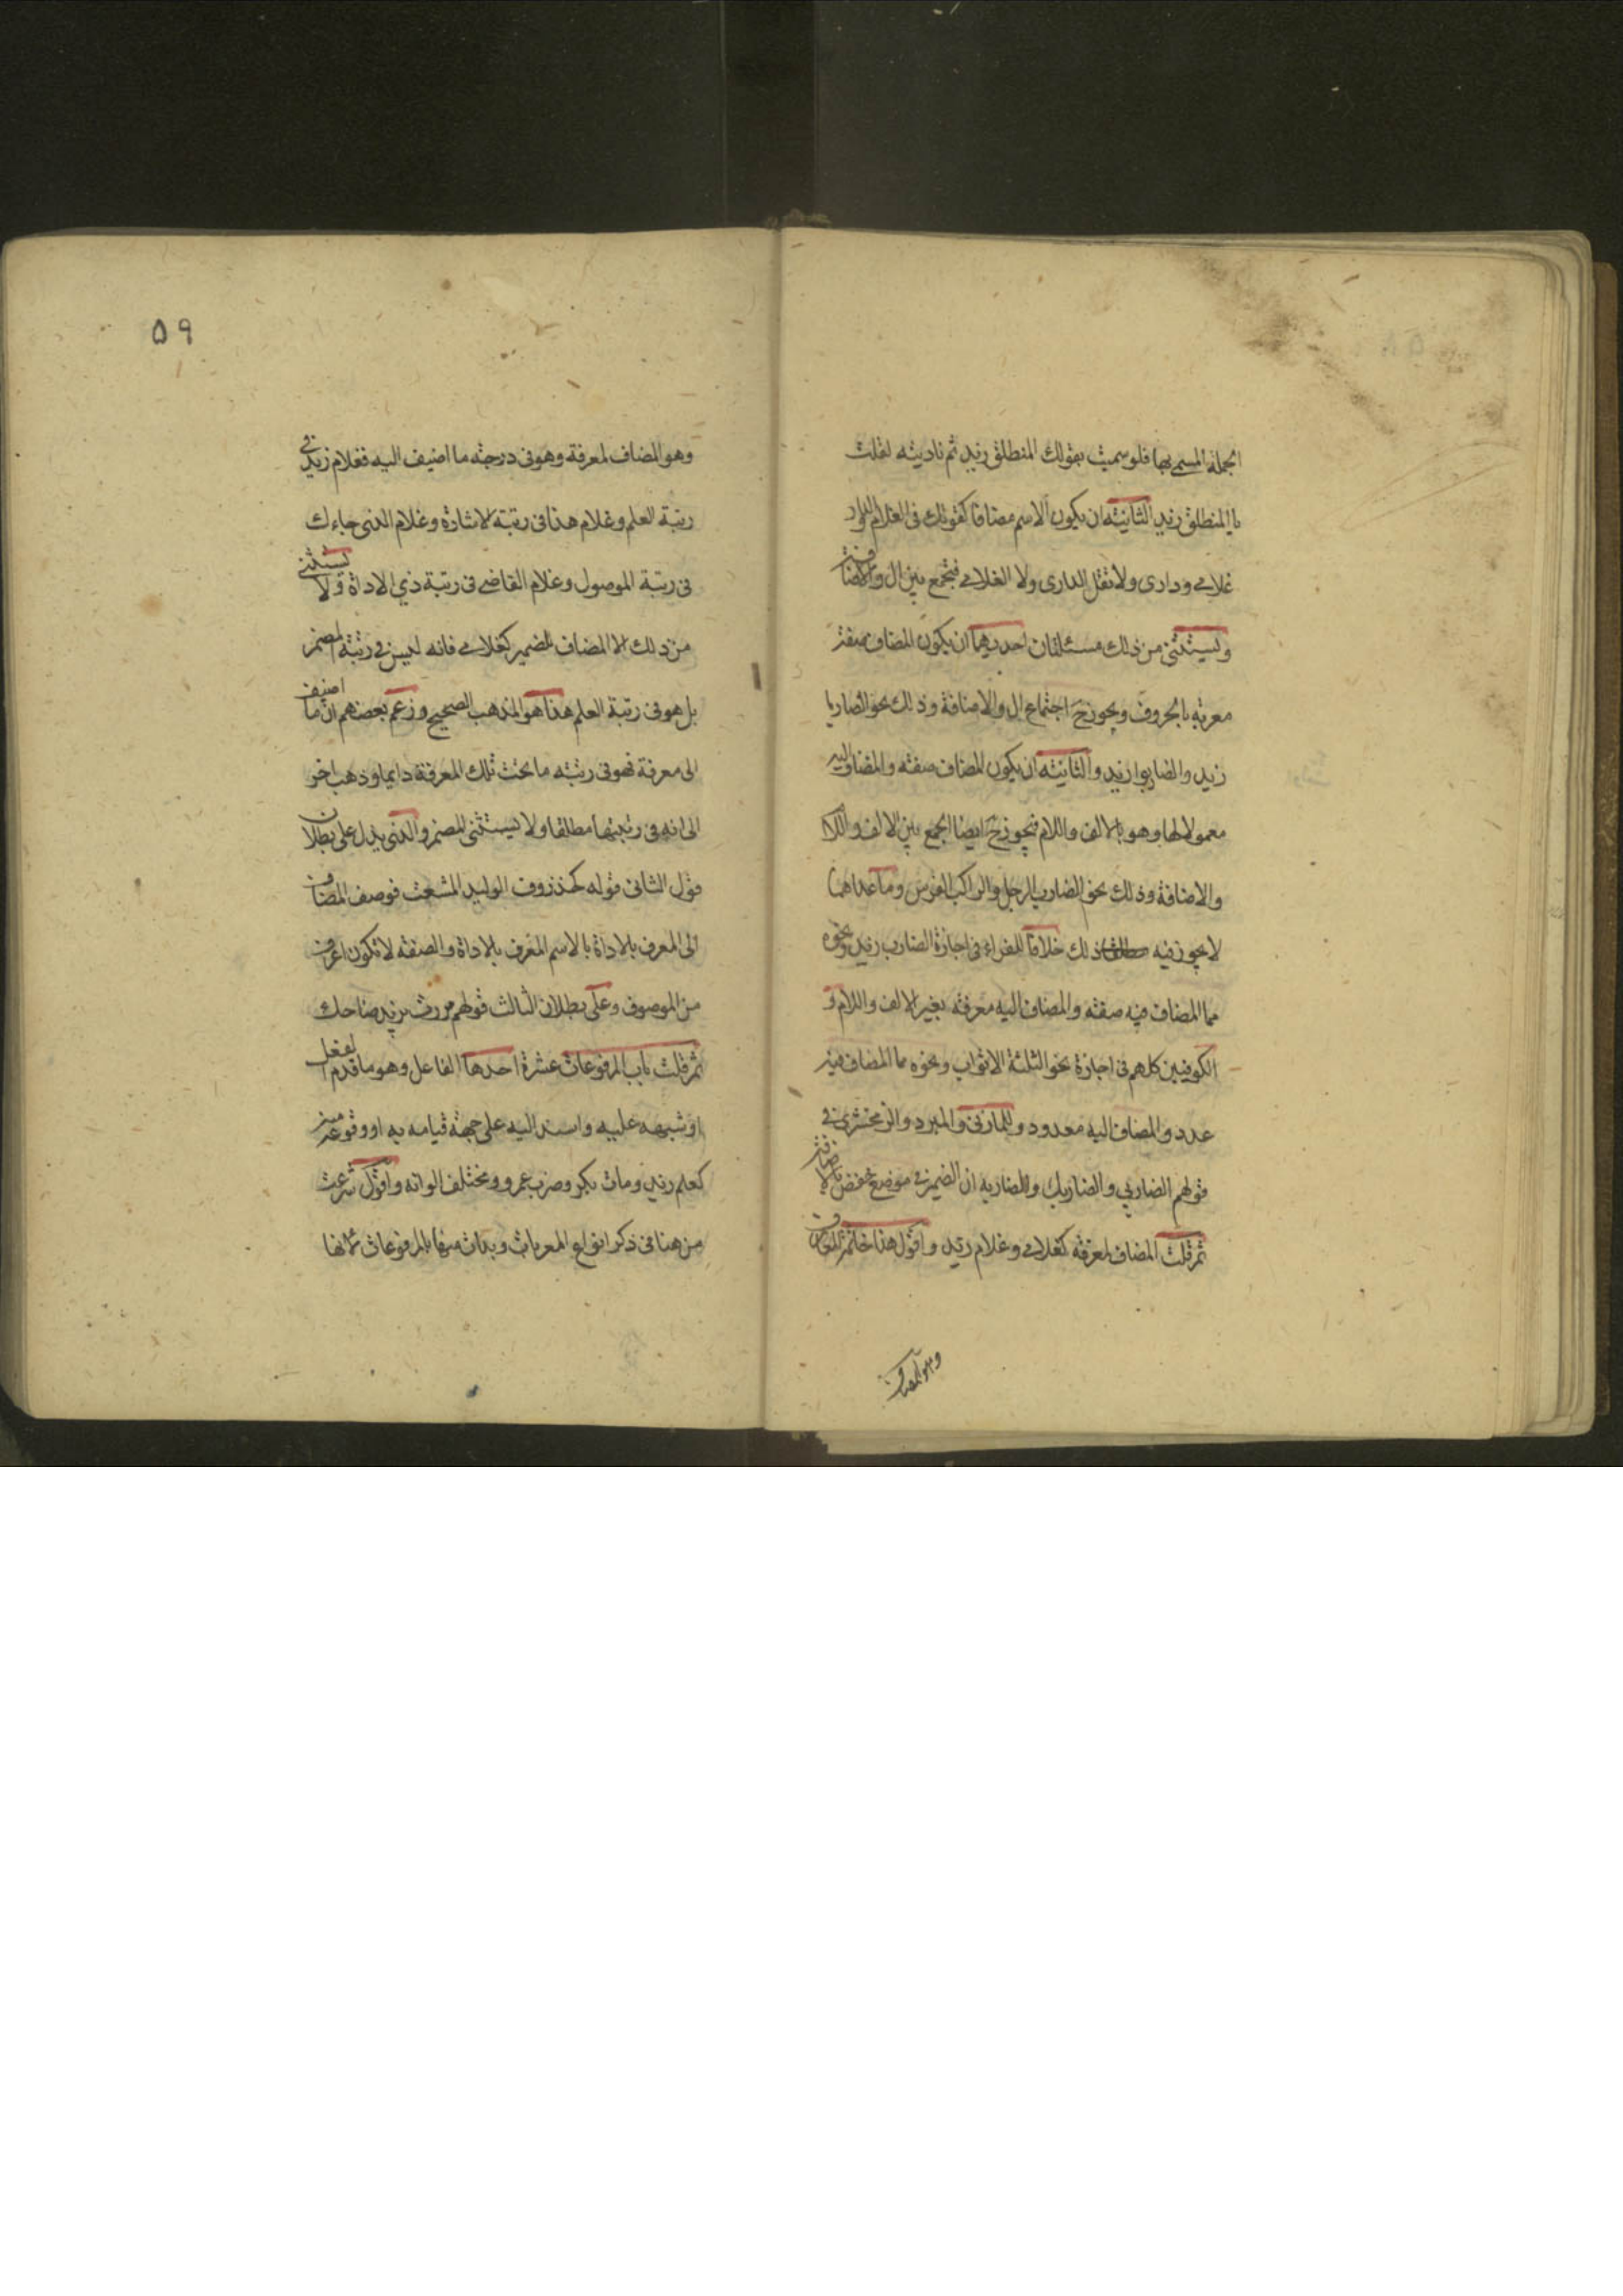 الجملة المسمى بها فلو سميت بقولك المنطلق زيد ثم ناديته لقلت
يا المنطلق زيد الثانية ان يكون الاسم مضافا كقولك فى الغلام والدار
غلامى ودارى ولا تقل الدارى ولا الغلامى فتجمع بين ال والاضافة
ويستثنى من ذلك مسئلتان احديهما ان يكون المضاف صفة
معربة بالحروف ويجوز ح اجتماع ال والاضافة وذلك نحو الضاربا
زيد والضاربوا زيد والثانية ان يكون المضاف صفة والمضاف اليه
معمولا لها وهو بالالف واللام فيجوز ح ايضا الجمع بين الالف واللام
والاضافة وذلك نحو الضارب الرجل والراكب الفرس وما عداهما
لا يجوز فيه ذلك خلافا للفراء فى اجازة الضارب زيد ونحوه
مما المضاف فيه صفة والمضاف اليه معرفة بغير الالف واللام و
الكوفيين كلهم فى اجازة نحو الثلثة الاثواب ونحوه مما المضاف فيه
عدد والمضاف اليه معدود وللمازنى والمبرد والزمخشرى فى
قولهم الضاربي والضاربك والضاربه ان الضمير فى موضع خفض بالاضافة
ثم قلت المضاف لمعرفة كغلامى وغلام زيد واقول هذا خاتمة المعارف
وهو المضاف
٥٩
وهو المضاف لمعرفة وهو فى درجة ما اضيف اليه فغلام زيد فى
رتبة العلم وغلام هذا فى رتبة الاشارة وغلام الذى جاءك
فى رتبة الموصول وغلام القاضى فى رتبة ذي الاداة ولا يستثنى
من ذلك الا المضاف للضمير كغلامى فانه ليس فى رتبة المضمر
بل هو فى رتبة العلم هذا هو المذهب الصحيح وزعم بعضهم ان ما اضيف
الى معرفة فهو فى رتبة ما تحت تلك المعرفة دايما وذهب اخر
الى انه فى رتبتها مطلقا ولا يستثنى المضمر والذى يدل على بطلان
قول الثانى قوله كخذروف الوليد المثقب فوصف المضاف
الى المعرف بالاداة بالاسم المعرف بالاداة والصفة لا تكون اعرف
من الموصوف وعلى بطلان الثالث قولهم مررت بزيد صاحبك
ثم قلت باب المرفوعات عشرة احدها الفاعل وهو ما قدم الفعل
او شبهه عليه واسند اليه على جهة قيامه به او وقوعه منه
كعلم زيد ومات بكر وضرب عمرو ومختلف الوانه واقول شرعت
من هنا فى ذكر انواع المعربات وبدات منها بالمرفوعات لانها